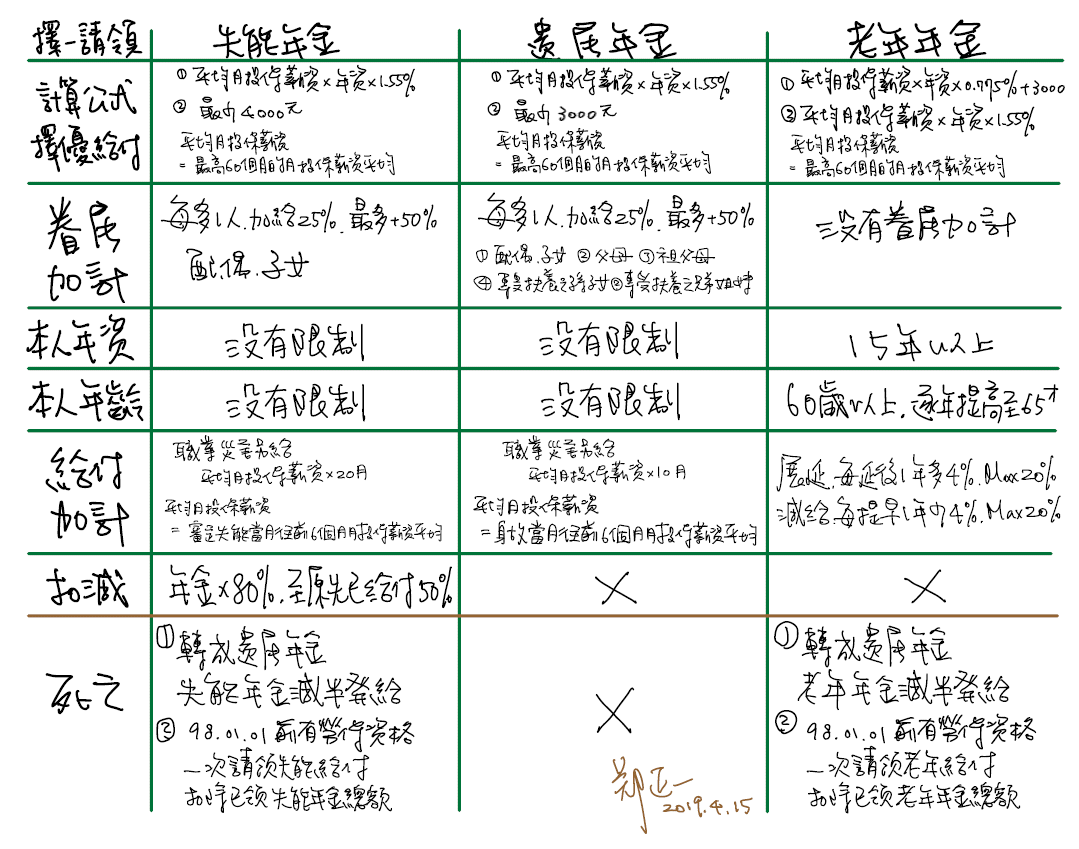 擇一請領 失能年金 遺屬年金 老年年金
計算公式
擇優給付
① 平均月投保薪資×年資×1.55%
② 最少4000元
平均月投保薪資
=最高60個月的月投保薪資平均
① 平均月投保薪資×年資×1.55%
② 最少3000元
平均月投保薪資
=最高60個月的月投保薪資平均
① 平均月投保薪資×年資×0.775%+3000
② 平均月投保薪資×年資×1.55%
平均月投保薪資
=最高60個月的月投保薪資平均
眷屬
加計
每多1人.加給25%.最多+50%
配偶.子女
每多1人.加給25%.最多+50%
① 配偶.子女 ② 父母 ③ 祖父母
④ 專受扶養之孫子女 ⑤ 專受扶養之兄弟姐妹
沒有眷屬加計
本人年資 沒有限制 沒有限制 15年以上
本人年齡 沒有限制 沒有限制 60歲以上.逐年提高至65才
給付
加計
職業災害另給
平均月投保薪資×20月
平均月投保薪資
=審定失能當月往前6個月月投保薪資平均
職業災害另給
平均月投保薪資×10月
平均月投保薪資
=身故當月往前6個月月投保薪資平均
展延.每延後1年多4%.Max20%
減給.每提早1年少4%.Max20%
扣減 年金×80%.至原先已給付50% × ×
死亡
① 轉成遺屬年金
失能年金減半發給
② 98.01.01前有勞保資格
一次請領失能給付
扣除已領失能年金總額
×
① 轉成遺屬年金
老年年金減半發給
② 98.01.01前有勞保資格
一次請領老年給付
扣除已領老年年金總額
鄭正一
2019.4.15